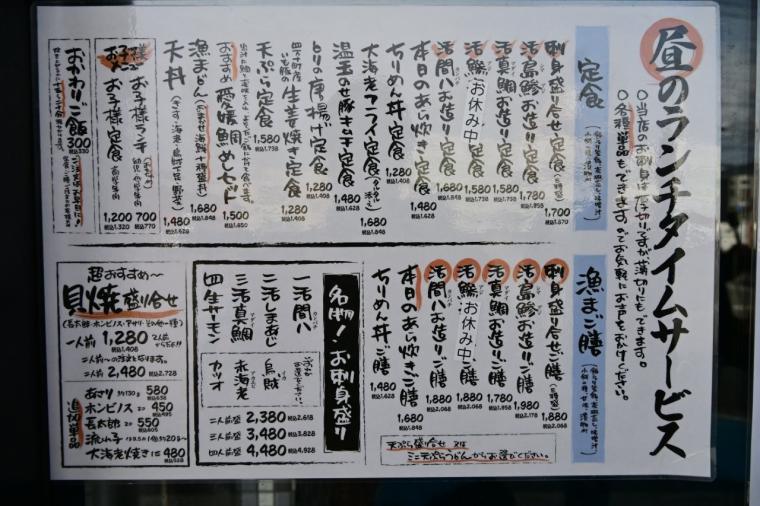 昼のランチタイムサービス
○当店のお刺身は厚切りですが薄切りにもできます。
○各種単品もできます。お気軽にお声をおかけください。
定食
刺身盛り合せ定食(5種盛) 1,700 税込1,870
活島鯵お造り定食 1,780
活真鯛お造り定食 1,580
活鯵 お休み中 1,580
活間八お造り定食 1,680
本日のあら炊き定食 1,480 税込1,628
ちりめん丼定食 1,280 税込1,408
大海老フライ定食 1,680 税込1,848
温玉のせ豚キムチ定食 1,480 税込1,628
とりの唐揚げ定食 1,280 税込1,408
生姜焼き定食 1,280 税込1,408
天ぷら定食 1,580 税込1,738
おすすめ 愛媛鯛めしセット 1,500 税込1,650
漁まどん 1,680 税込1,848
天丼 1,480 税込1,628
お子様メニュー
お子様ランチ 700 税込770
お子様定食 1,200 税込1,320
おかわりご飯 300 税込330
漁まご膳
刺身盛り合せご膳(5種盛) 1,880 税込2,068
活島鯵お造りご膳 1,980 税込2,178
活真鯛お造りご膳 1,780 税込1,958
活鯵 お休み中 1,880 税込2,068
活間八お造りご膳 1,880 税込2,068
本日のあら炊きご膳 1,680 税込1,848
ちりめん丼ご膳 1,480 税込1,628
天ぷら盛合せ 又は
ミニ天ぷらうどんからお選びください。
名物！お刺身盛り
一 活間八
二 活しまあじ
三 活真鯛
四 生サーモン
烏賊
赤海老
カツオ
二人前盛 2,380 税込2,618
三人前盛 3,480 税込3,828
四人前盛 4,480 税込4,928
超おすすめ〜
貝焼盛り合せ
(長太郎・ホンビノス・アサリ・その他一種)
一人前 1,280 税込1,408
二人前〜の注文となります。
二人前 2,480 税込2,728
追加単品
あさり 約130g 580 税込638
ホンビノス 2ヶ 450 税込495
長太郎 2ヶ 550 税込605
流れ子
大海老焼き 1ヶ 480 税込528